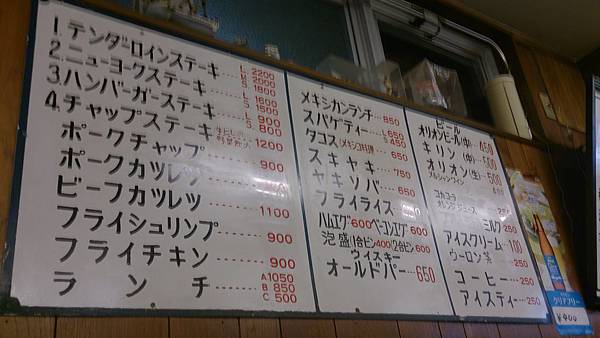 1.テンダーロインステーキ……L 2200 M 2000 S 1800
2.ニューヨークステーキ……L 1600 S 1500
3.ハンバーガーステーキ……L 900 S 800
4.チャップステーキ……1200
ポークチャップ……900
ポークカツレツ
ビーフカツレツ……1100
フライシュリンプ……900
フライチキン……900
ランチ……A 1050 B 850 C 500
メキシカンランチ……850
スパゲティー……L 650 S 450
タコス(メキシコ料理)……650
スキヤキ……750
ヤキソバ……650
フライライス
ハムエグ600 ベーコンエグ600
泡盛1合ビン400 2合ビン600
ウイスキー
オールドパー……650
ビール
オリオンビール(中)450
キリン(中)500
オリオン(生)500
コカコラ
オレンジジュース 250
ミルク 250
アイスクリーム 100
ウーロン茶 250
コーヒー……250
アイスティー……250
クリアフリー
¥400